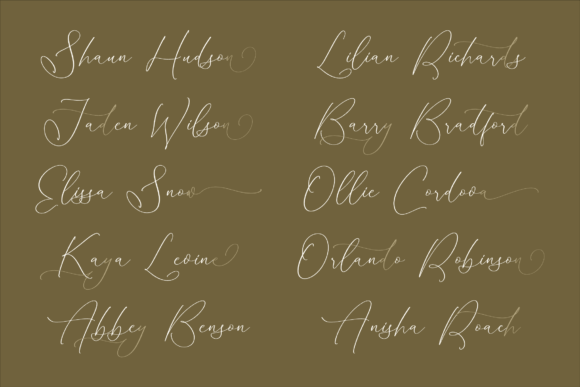 Shaun Hudson
Jaden Wilson
Elissa Snow
Kaya Levine
Abbey Benson
Lilian Richards
Barry Bradford
Ollie Cordova
Orlando Robinson
Anisha Roach